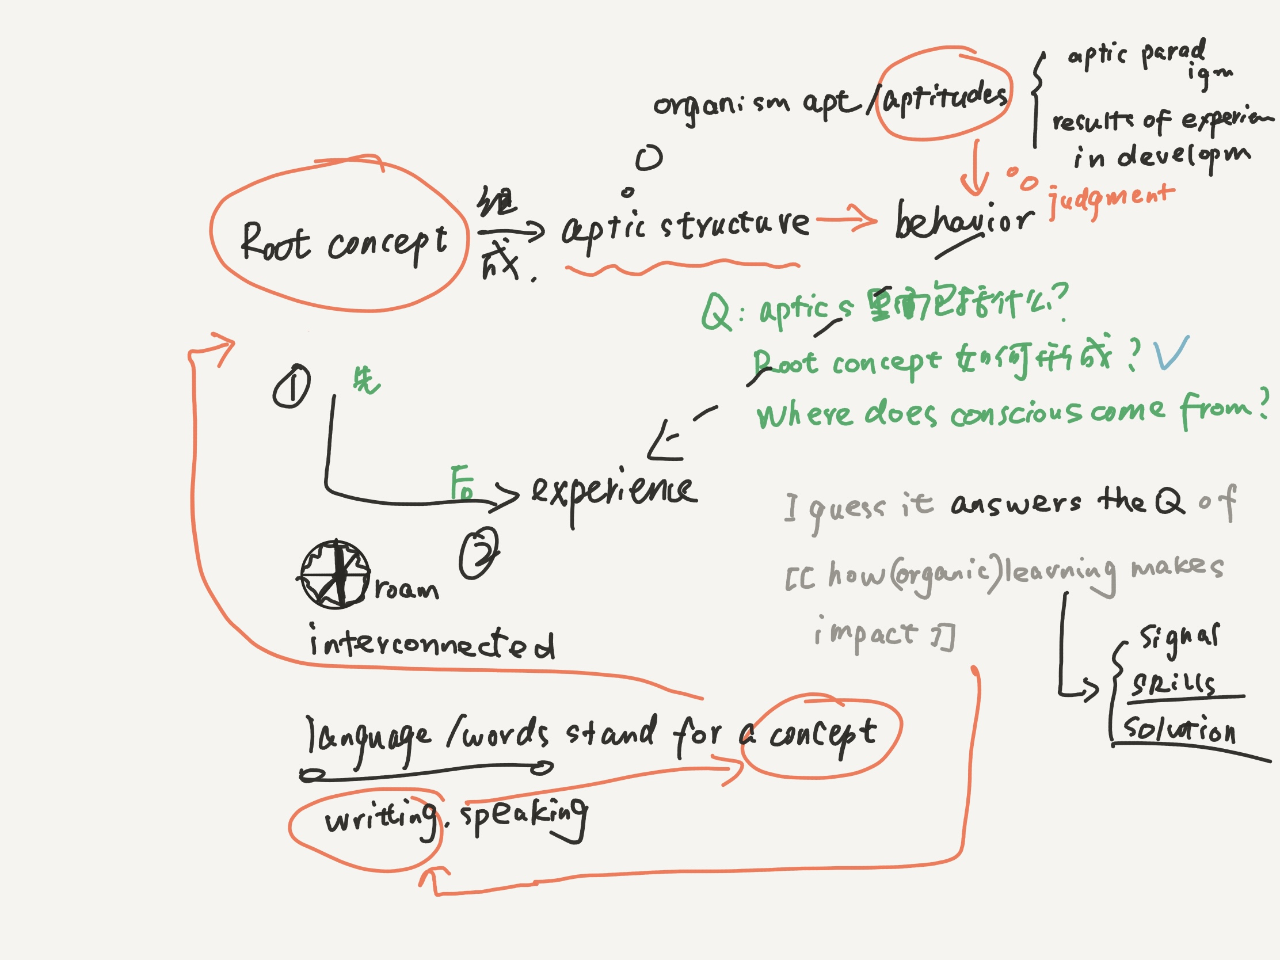 organism apt/aptitudes
aptic parad
igm
results of experien
in developm
Root concept
组
成.
aptic structure
behavior
judgment
Q: aptics 里面包括什么?
Root concept 如何形成?
where does conscious come from?
① 先
后
②
experience
I guess it answers the Q of
[[ how (organic) learning makes
impact ]]
signal
skills
solution
roam
interconnected
language/words stand for a concept
writting. speaking